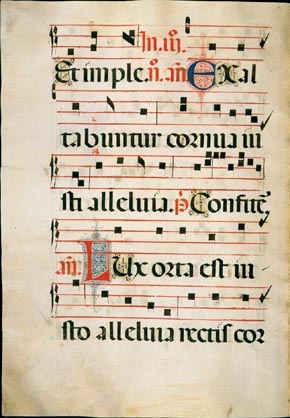 In. iii.
Et imple. ii. añ Exal
tabuntur cornua iu
sti alleluia. p̄ Confite
añ. Lux orta est iu-
sto alleluia rectis cor